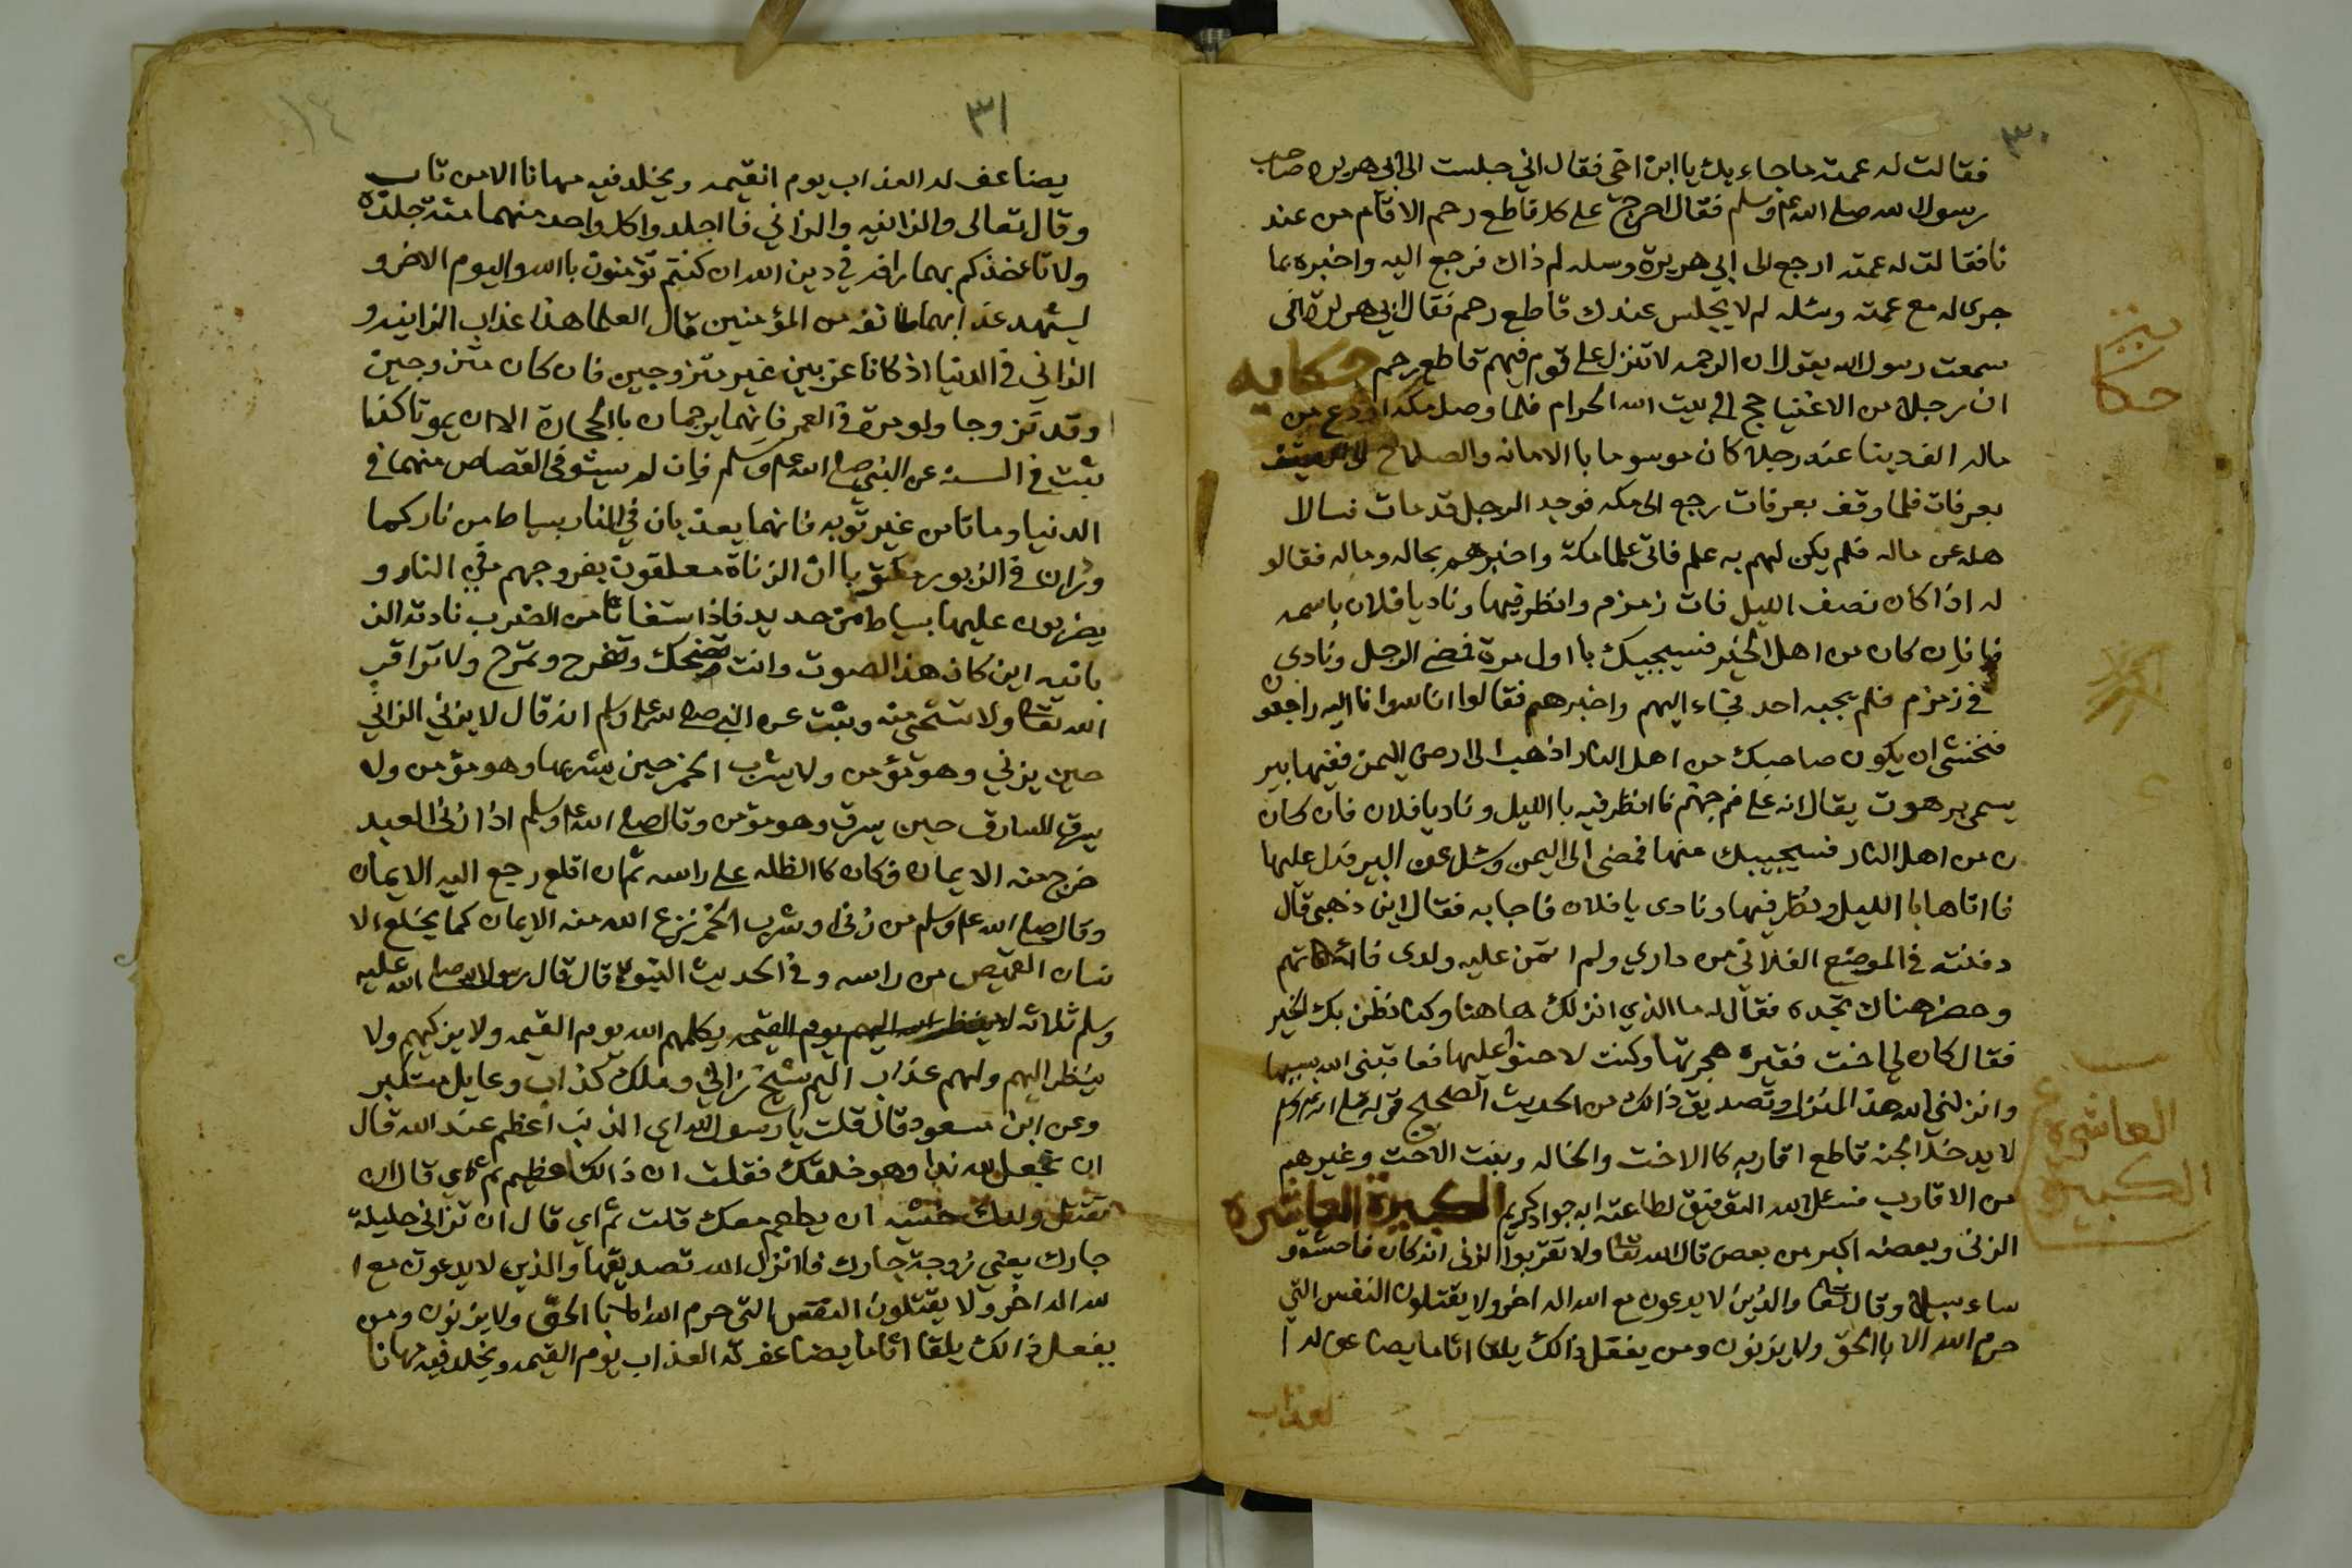 ٣٠
فقالت له عمته ما جاء بك يا ابن اخي فقال اني جلست الى ابي هريرة صاحب
رسول الله صلى الله عليه وسلم فقال احرج على كل قاطع رحم الا قام من عند
نا فقالت له عمته ارجع الى ابي هريرة وسله لم ذاك فرجع اليه واخبره بما
جرى له مع عمته وسئله لم لا يجلس عندك قاطع رحم فقال ابي هريرة اني
سمعت رسول الله يقول ان الرحمه لا تنزل على قوم فيهم قاطع رحم حكايه
ان رجلا من الاغنيا حج الى بيت الله الحرام فلما وصل مكه اودع من
ماله الف دينا عند رجلا كان موسوما با الامانه والصلاح
بعرفات فلما وقف بعرفات رجع الى مكه فوجد الرجل قد مات فسال ا
هله عن ماله فلم يكن لهم به علم فاتى علما مكة واخبرهم بحاله وماله فقالو
له اذا كان نصف الليل فات زمزم وانظر فيها وناد يا فلان باسمه
فانان كان من اهل الخير فسيجيبك با اول مرة فمضى الرجل ونادى
في زمزم فلم يجبه احد فجاء اليهم واخبرهم فقالوا انا لله وانا اليه راجعون
فنخشى ان يكون صاحبك من اهل النار اذهب الى ارض اليمن ففيها بير
يسمى برهوت يقال انه على فم جهنم فا انظر فيه با الليل وناد يا فلان فان كان
ن من اهل النار فسيجيبك منها فمضى الى اليمن وسئل عن البير فدل عليها
فا اتاها با الليل ونظر فيها ونادى يا فلان فاجابه فقال اين ذهبي قال
دفنته في الموضع الفلاني من داري ولم ا تمن عليه ولدى فائتهم
وحضر هناك تجده فقال له ما الذي انزلك ها هنا وكنا نظن بك الخير
فقال كان لي اخت فقيره هجرتها وكنت لا احنوا عليها فعاقبنى الله بسببها
وانزلني الله هذ المنزل وتصديق ذالك من الحديث الصحيح قوله صلى الله عليه وسلم
لا يدخل الجنه قاطع اقاربه كا الاخت والخاله وبنت الاخت وغيرهم
من الاقارب فنسئل الله التوفيق لطاعته انه جواد كريم الكبيرة العاشره
الزنى وبعضه اكبر من بعض قال الله تعا ولا تقربوا الزنى انه كان فاحشة و
ساء سبيلا وقال تعا والذين لا يدعون مع الله اله اخر ولا يقتلون النفس التي
حرم الله الا با الحق ولا يزنون ومن يفعل ذالك يلقا اثاما يضاعف له ا
لعذاب
حكا
العاشره
الكبيرة
٣١
١٤
يضاعف له العذاب يوم القيمه ويخلد فيه مهانا الا من تاب
وقال تعالى والزانيه والزاني فا اجلدوا كل واحد منهما مئة جلدة
ولا تاخذكم بهما رافه في دين الله ان كنتم تؤمنون با الله واليوم الاخر و
ليشهد عذابهما طائفه من المؤمنين قال العلما هذا عذاب الزانيه و
الزاني في الدنيا اذ كانا عزبين غير متزوجين فان كان متزوجين
او قد تزوجا ولو مرة في العمر فانهما يرجمان با الحجارة الا ان يموتا كذا
ثبت في السنه عن النبي صلى الله عليه وسلم فان لم يستوفى القصاص منهما في
الدنيا وماتا من غير توبه فانهما يعذبان في النار بسياط من نار كما
ورد ان في الزبور مكتوب ان الزناة معلقون بفروجهم في النار و
يضربون عليها بسياط من حديد فاذا استغاثا من الضرب نادته الز
بانيه اين كان هذا الصوت وانت تضحك وتفرح وتمرح ولا تراقب
الله تعا ولا تستحي منه وثبت عن النبي صلى الله عليه وسلم انه قال لا يزني الزاني
حين يزني وهو مؤمن ولا يشرب الخمر حين يشربها وهو مؤمن ولا
يسرق السارق حين يسرق وهو مؤمن وقال صلى الله عليه وسلم اذا زنى العبد
خرج منه الايمان فكان كا الظله على راسه ثم ان اقلع رجع اليه الايمان
وقال صلى الله عليه وسلم من زنى او شرب الخمر نزع الله منه الايمان كما يخلع الا
نسان القميص من راسه وفي الحديث النبوي قال قال رسول الله صلى الله عليه
وسلم ثلاثه لا ينظر الله اليهم يوم القيمه يكلمهم الله يوم القيمه ولا يزكيهم ولا
ينظر اليهم ولهم عذاب اليم شيخ زاني وملك كذاب وعايل متكبر
وعن ابن مسعود قال قلت يا رسول الله اي الذنب اعظم عند الله قال
ان تجعل لله ندا وهو خلقك فقلت ان ذالك لعظيم ثم اي قال ان
تقتل ولدك خشيه ان يطعم معك قلت ثم اي قال ان تزاني حليلة
جارك يعني زوجة جارك فا انزل الله تصديقها والذين لا يدعون مع ا
لله اله اخر ولا يقتلون النفس التي حرم الله الا با الحق ولا يزنون ومن
يفعل ذالك يلقا اثاما يضاعف له العذاب يوم القيمه ويخلد فيه مهانا